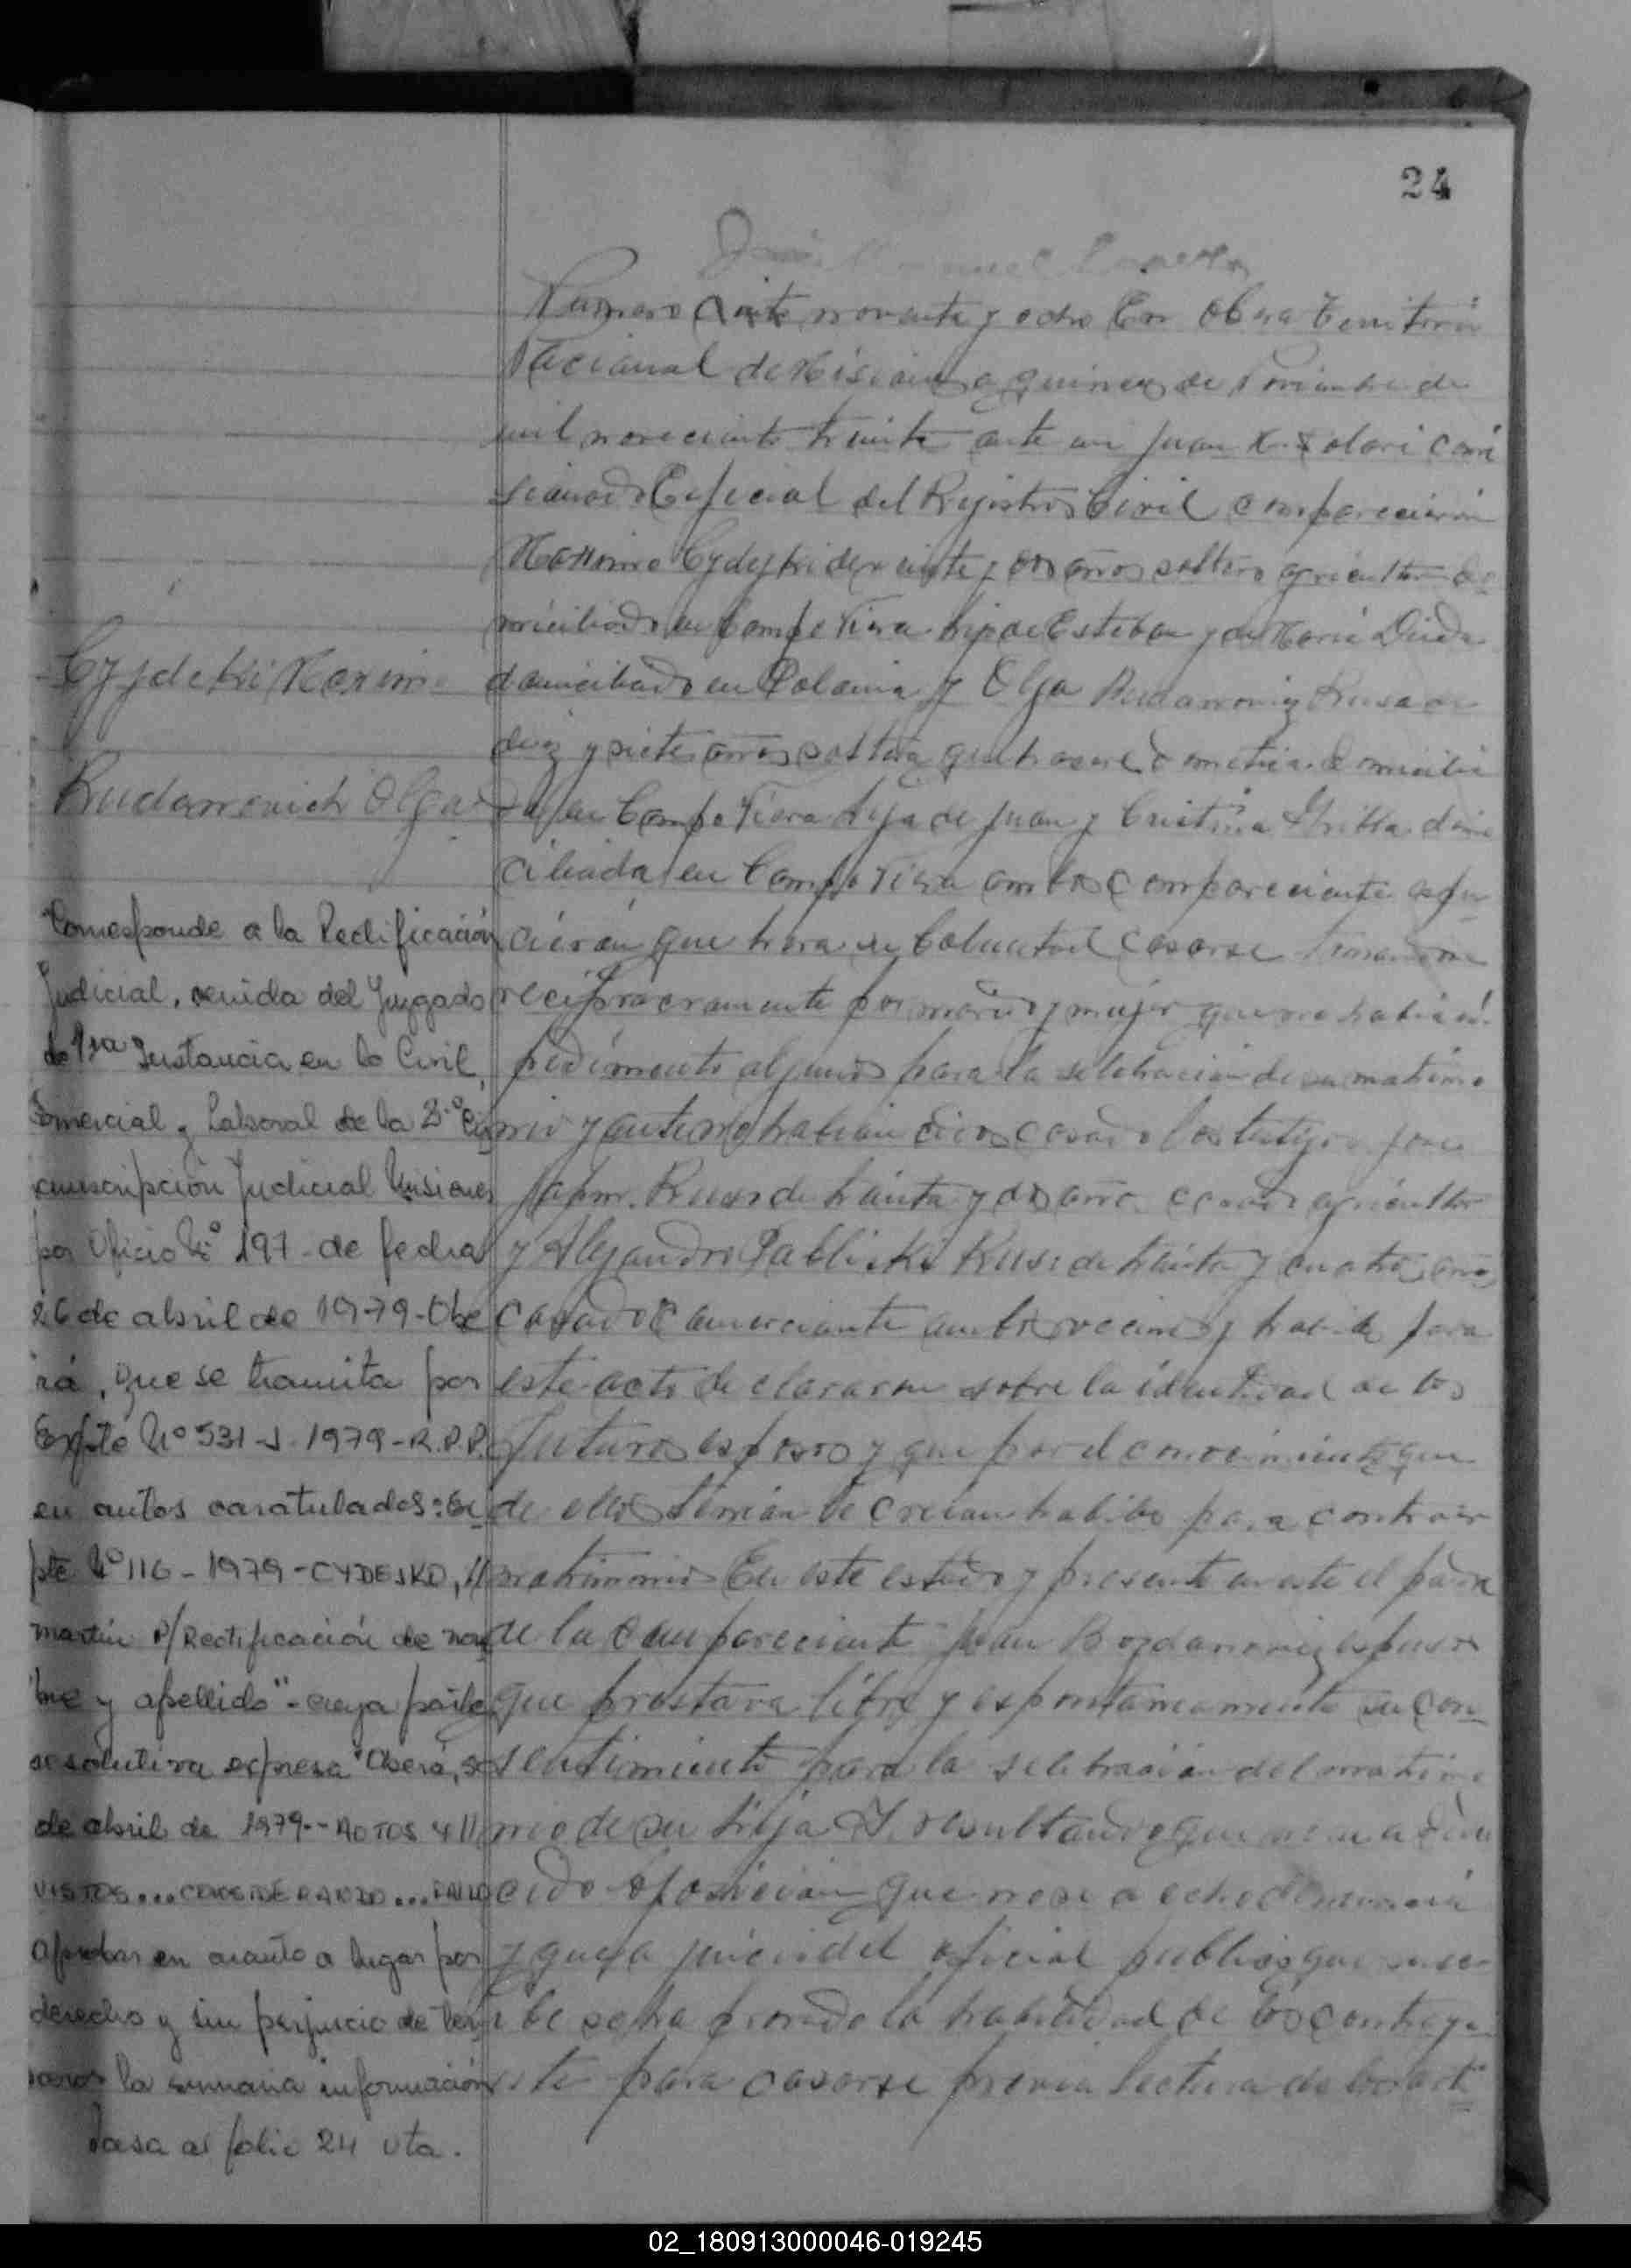 24
Numero ciento noventa y ocho En Obera Territorio
Nacional de Misiones a quince de Noviembre de
mil novecientos treinta ante mi Juan comi
sionado Especial del Registro Civil comparecieron
Maximo de veinte y dos años soltero agricultor do
miciliado en Campo Viera hijo de Esteban y de Maria
domiciliado en Polonia y Olga Rusa de
diez y siete años soltera quehaceres domestica domicilia
da en Campo Viera hija de Juan y Cristina domi
ciliada en Campo Viera ambos compareciente
cieron que hera su Boluntad casarse tomandose
reciprocramente por marido y mujer que no habia in
pedimento alguno para la selebracion de su matrimo
nio y antemi habian dicos casado los testigos
Ruso de trainta y dos año casado agricultor
y Alejandro Pabliski Ruso de trainta y cuatro años
casado comerciante ambos vecinos y habiles para
este acto declararon sobre la identidad de los
futuros esposos y que por el conocimiento que
de ellos tenian le creian habiles para contraer
matrimonio En este estado y presente en este el padre
de la compareciente Juan Bogdanoviez espuso
que prestava libre y espontaneamente su con
sentimiento para la selebracion del matrimo
nio de su hija Y resultando que no
cido oposicion que no se a echo denuncia
y que a juicio del oficial publico que suscri
be se ha provado la habilidad de los contraye
nte para casarse previa lectura de los arti
Cyjdeki Maximo
Rudanovich Olga
Corresponde a la Rectificación
Judicial, venida del Juzgado
de 1ra Instancia en lo Civil,
Comercial y Laboral de la 2.º Cir
cunscripción Judicial Misiones
por Oficio Nº 197 - de fecha
26 de abril de 1979 - Obe
rá, que se tramita por
Expte Nº 531-J-1979-R.P.P.
en autos caratulados: Ex
pte Nº 116 - 1979 - CYDEJKO,
Martin P/Rectificación de nom
bre y apellido" - cuya parte
resolutiva expresa "Oberá,
de abril de 1979.- AUTOS Y
VISTOS... CONSIDERANDO... FALLO
Aprobar en cuanto a lugar por
derecho y sin perjuicio de ter
ceros la sumaria información
Pasa al folio 24 vta.
02_180913000046-019245